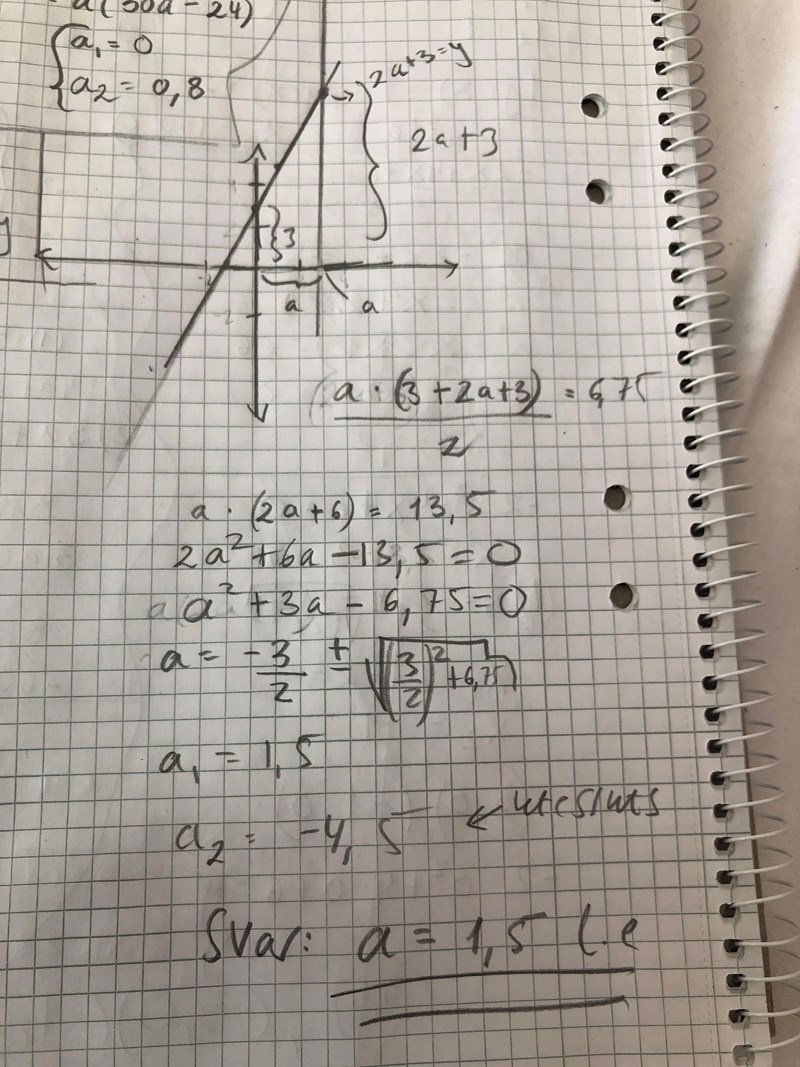 a(30a-24)
a₁ = 0
a₂ = 0,8
2a+3=y
2a+3
3
a a
a · (3+2a+3) = 6,75
2
a · (2a+6) = 13,5
2a²+6a-13,5=0
a²+3a-6,75=0
a = -3/2 ± √((3/2)²+6,75)
a₁ = 1,5
a₂ = -4,5 ←
Svar: a = 1,5 l.e